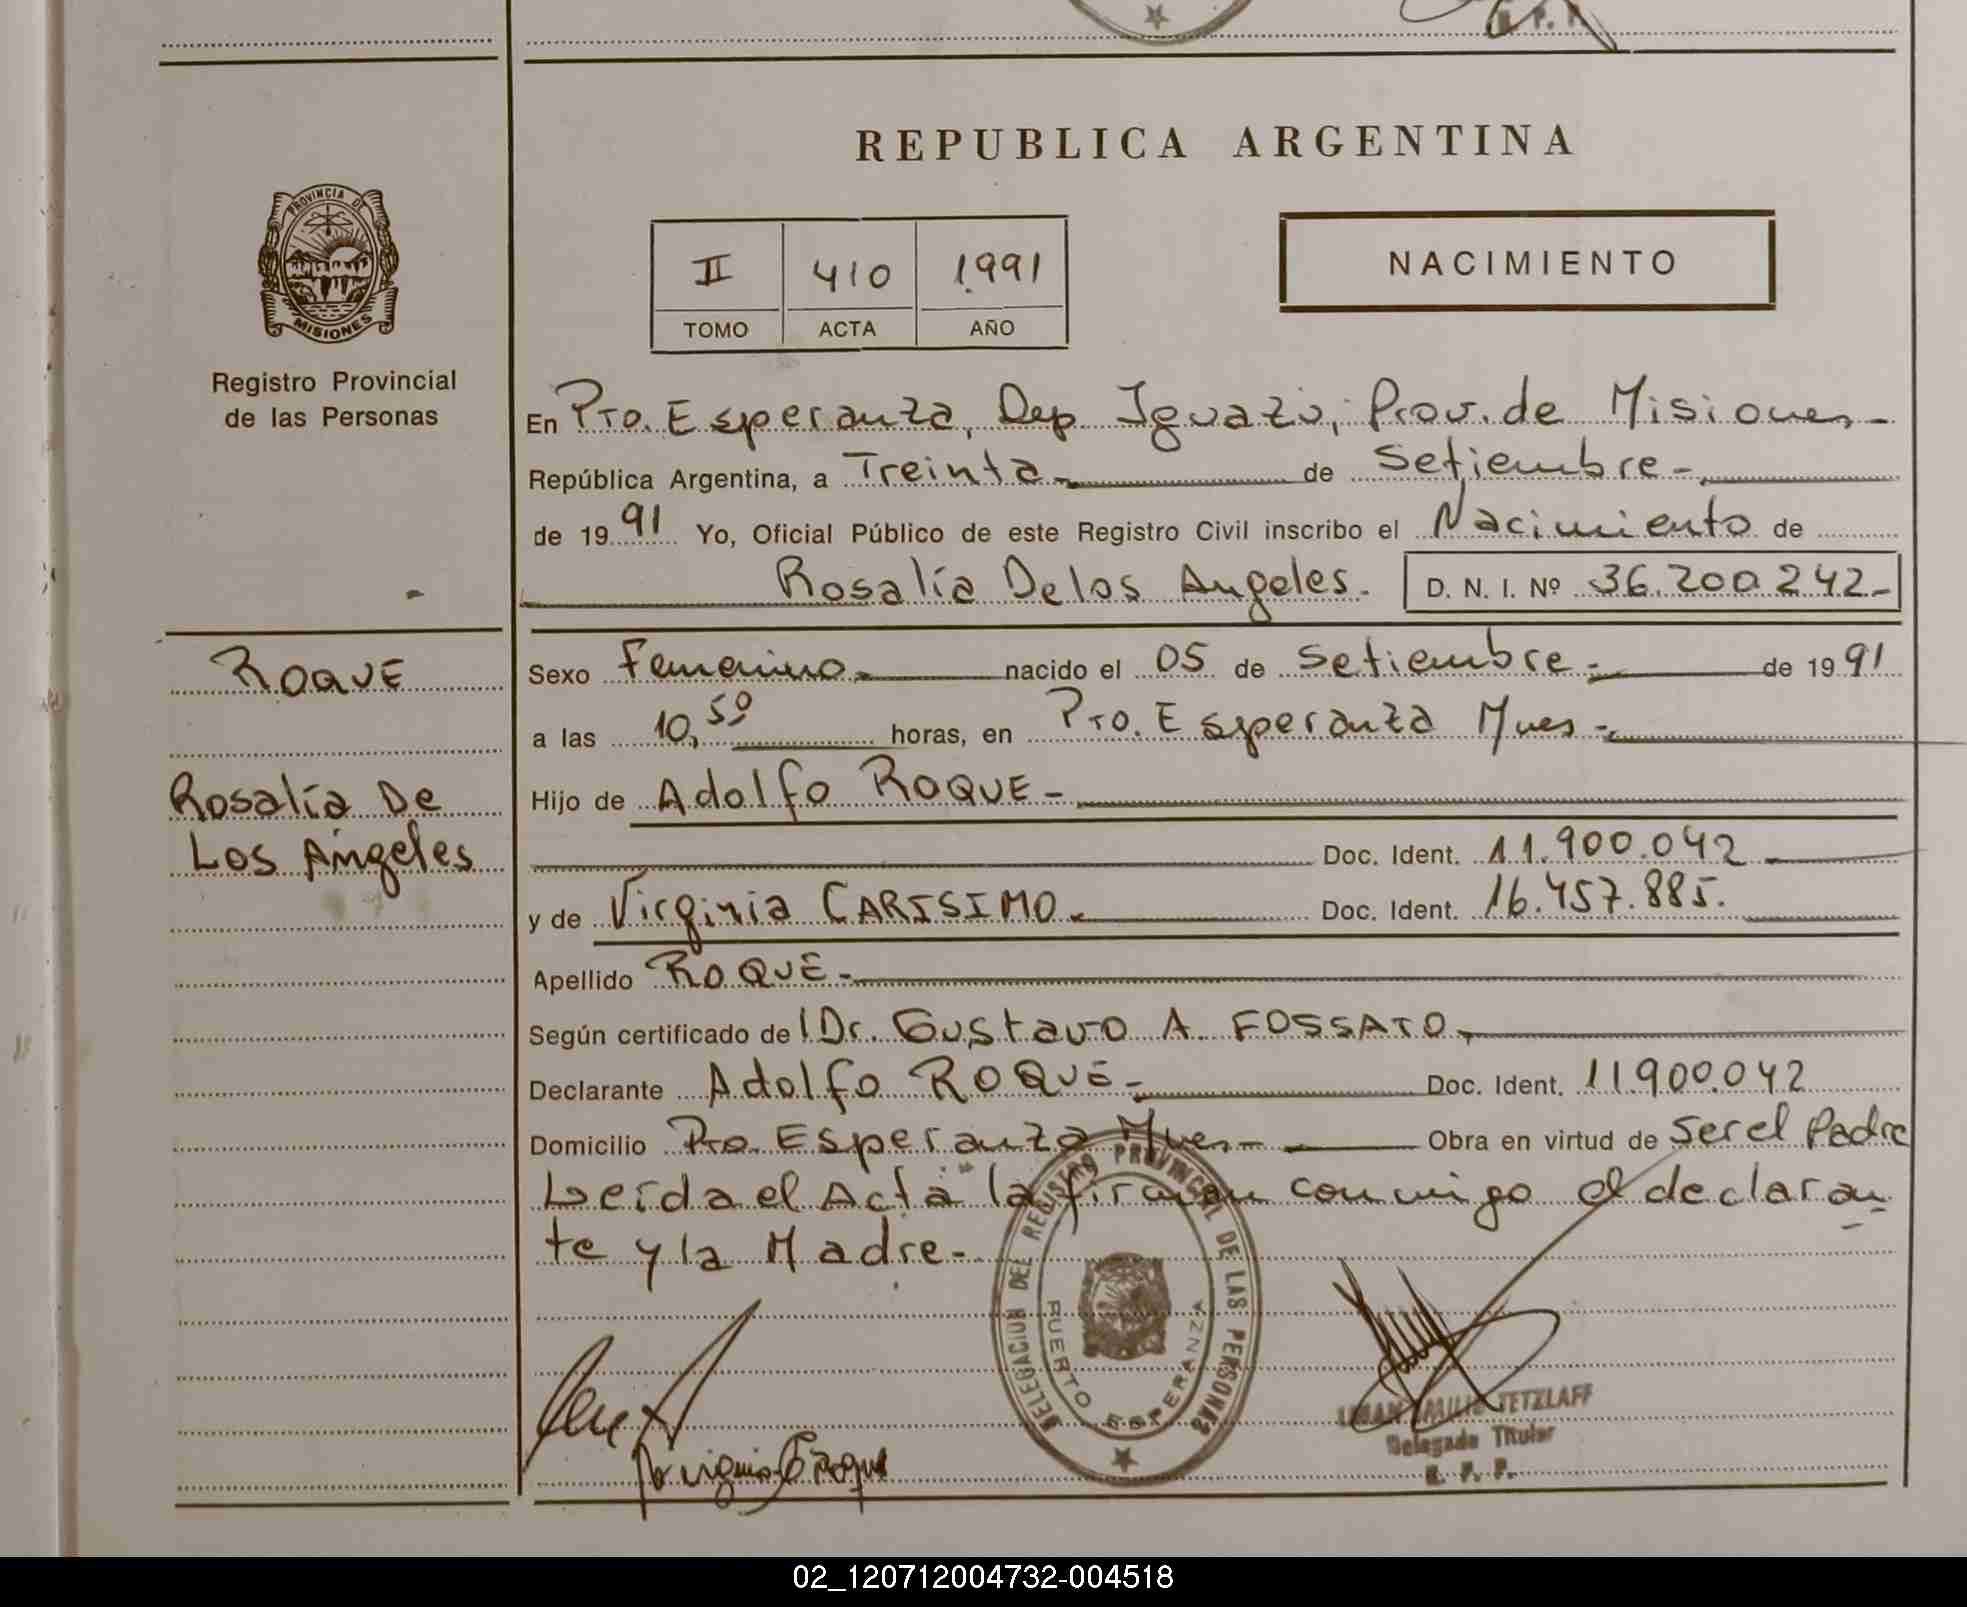 R. P. P.
REPUBLICA ARGENTINA
PROVINCIA DE
MISIONES
Registro Provincial
de las Personas
II 410 1991
TOMO ACTA AÑO
NACIMIENTO
En Pto. Esperanza, Dep Iguazú, Prov. de Misiones-
República Argentina, a Treinta- de Setiembre-
de 1991 Yo, Oficial Público de este Registro Civil inscribo el Nacimiento de
Rosalía De los Angeles. D. N. I. Nº 36.200.242-
ROQUE
Rosalía De
Los Angeles
Sexo Femenino.- nacido el 05 de Setiembre.- de 1991
a las 10,50 horas, en Pto. Esperanza Mnes-
Hijo de Adolfo ROQUE-
Doc. Ident. 11.900.042
y de Virginia CARISIMO.- Doc. Ident. 16.457.885.
Apellido ROQUE-
Según certificado de Dr. Gustavo A. FOSSATO,
Declarante Adolfo ROQUE- Doc. Ident. 11.900.042
Domicilio Pto. Esperanza Mnes- Obra en virtud de Ser el Padre
Leída el Acta la firman conmigo el declaran
te y la Madre-
DELEGACION DEL REGISTRO PROVINCIAL DE LAS PERSONAS
PUERTO ESPERANZA
TETZLAFF
Delegado Titular
R. P. P.
02_120712004732-004518